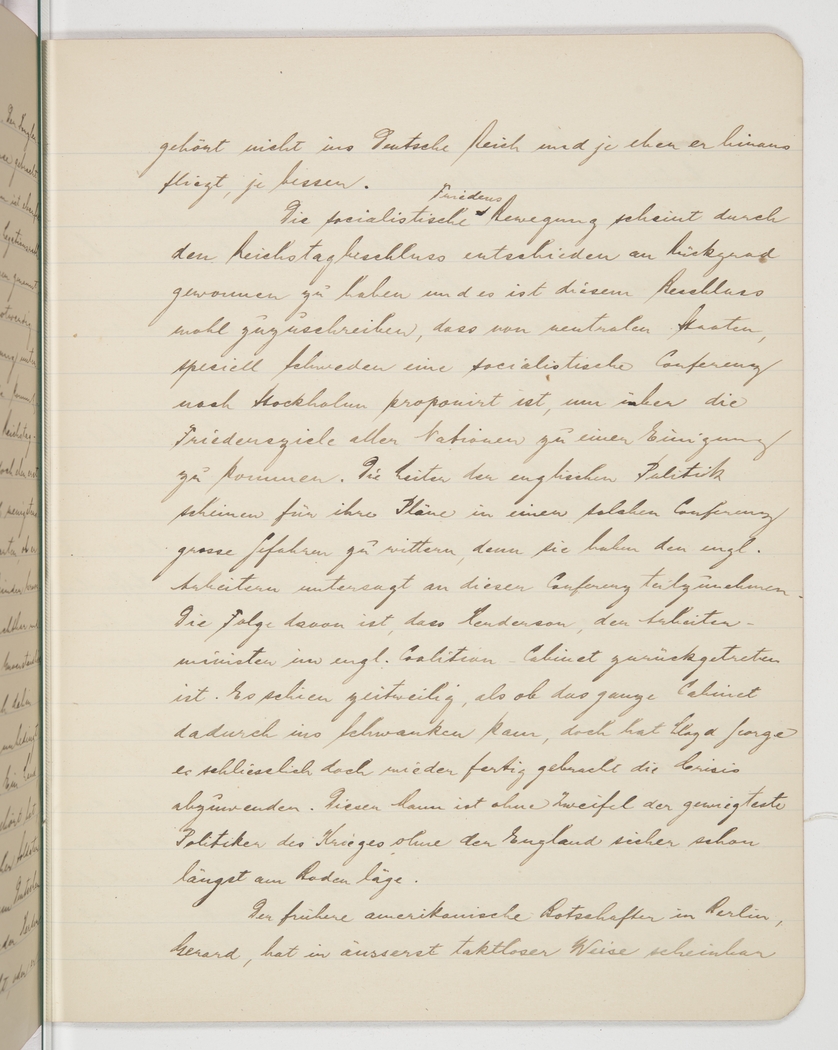 gehört nicht ins Deutsche Reich und je eher er hinaus
fliegt, je besser.
Friedens
Die socialistische Bewegung scheint durch
den Reichstagbeschluss entschieden an Rückgrad
gewonnen zu haben und es ist diesem Beschluss
wohl zuzuschreiben, dass von neutralen Staaten,
speziell Schweden eine socialistische Conferenz
nach Stockholm proponirt ist, um über die
Friedensziele aller Nationen zu einer Einigung
zu kommen. Die Leiter der englischen Politik
scheinen für ihre Pläne in einer solchen Conferenz
grosse Gefahren zu wittern, denn sie haben den engl.
Arbeitern untersagt an dieser Conferenz teilzunehmen.
Die Folge davon ist, dass Henderson, der Arbeiter-
minister im engl. Coalition-Cabinet zurückgetreten
ist. Es schien zeitweilig, als ob das ganze Cabinet
dadurch ins Schwanken kam, doch hat Lloyd George
es schliesslich doch wieder fertig gebracht die Crisis
abzuwenden. Dieser Mann ist ohne Zweifel der gewiegteste
Politiker des Krieges, ohne den England sicher schon
längst am Boden läge.
Der frühere amerikanische Botschafter in Berlin,
Gerard, hat in äusserst taktloser Weise scheinbar